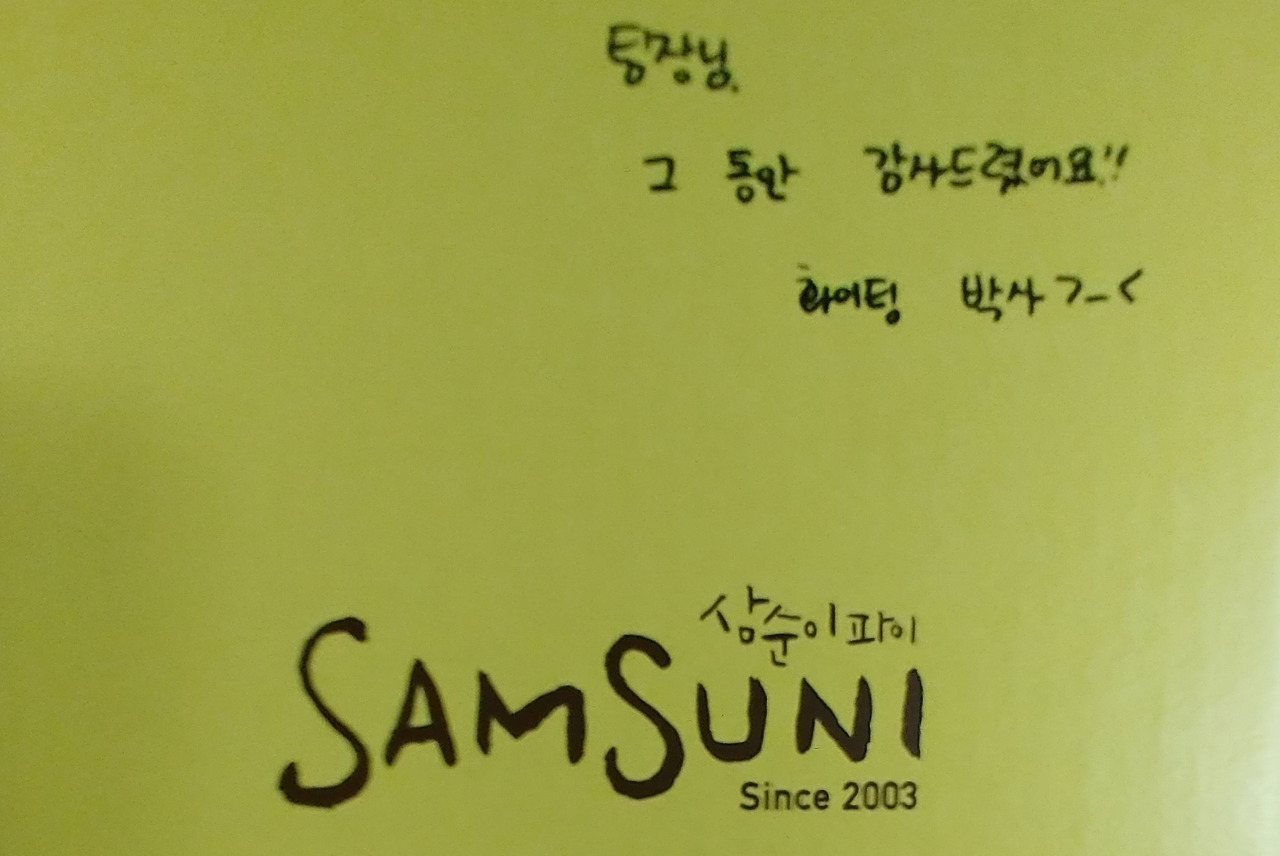 팅장님.
그 동안 감사드렸어요!!
화이팅 박사 >_<
삼순이파이
SAMSUNI
Since 2003